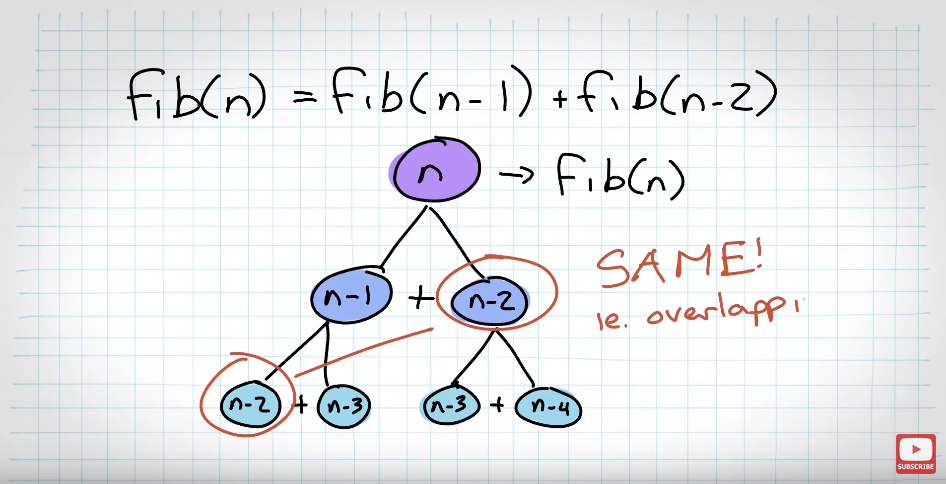 fib(n) = fib(n-1) + fib(n-2)
n → fib(n)
SAME!
n-1 + n-2
ie. overlappi
n-2 + n-3 n-3 + n-4
SUBSCRIBE